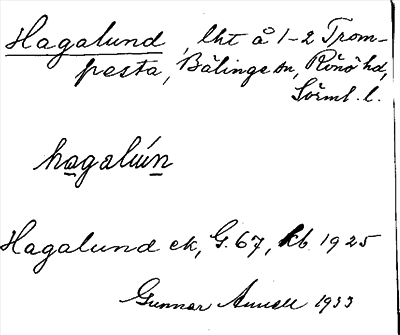 Hagalund, lht å 1-2 Trom-
pesta, Bälinge sn, Rönö hd,
Sörml. l.
hagalún
Hagalund ek, G. 67, kb 1925
Gunnar 1933